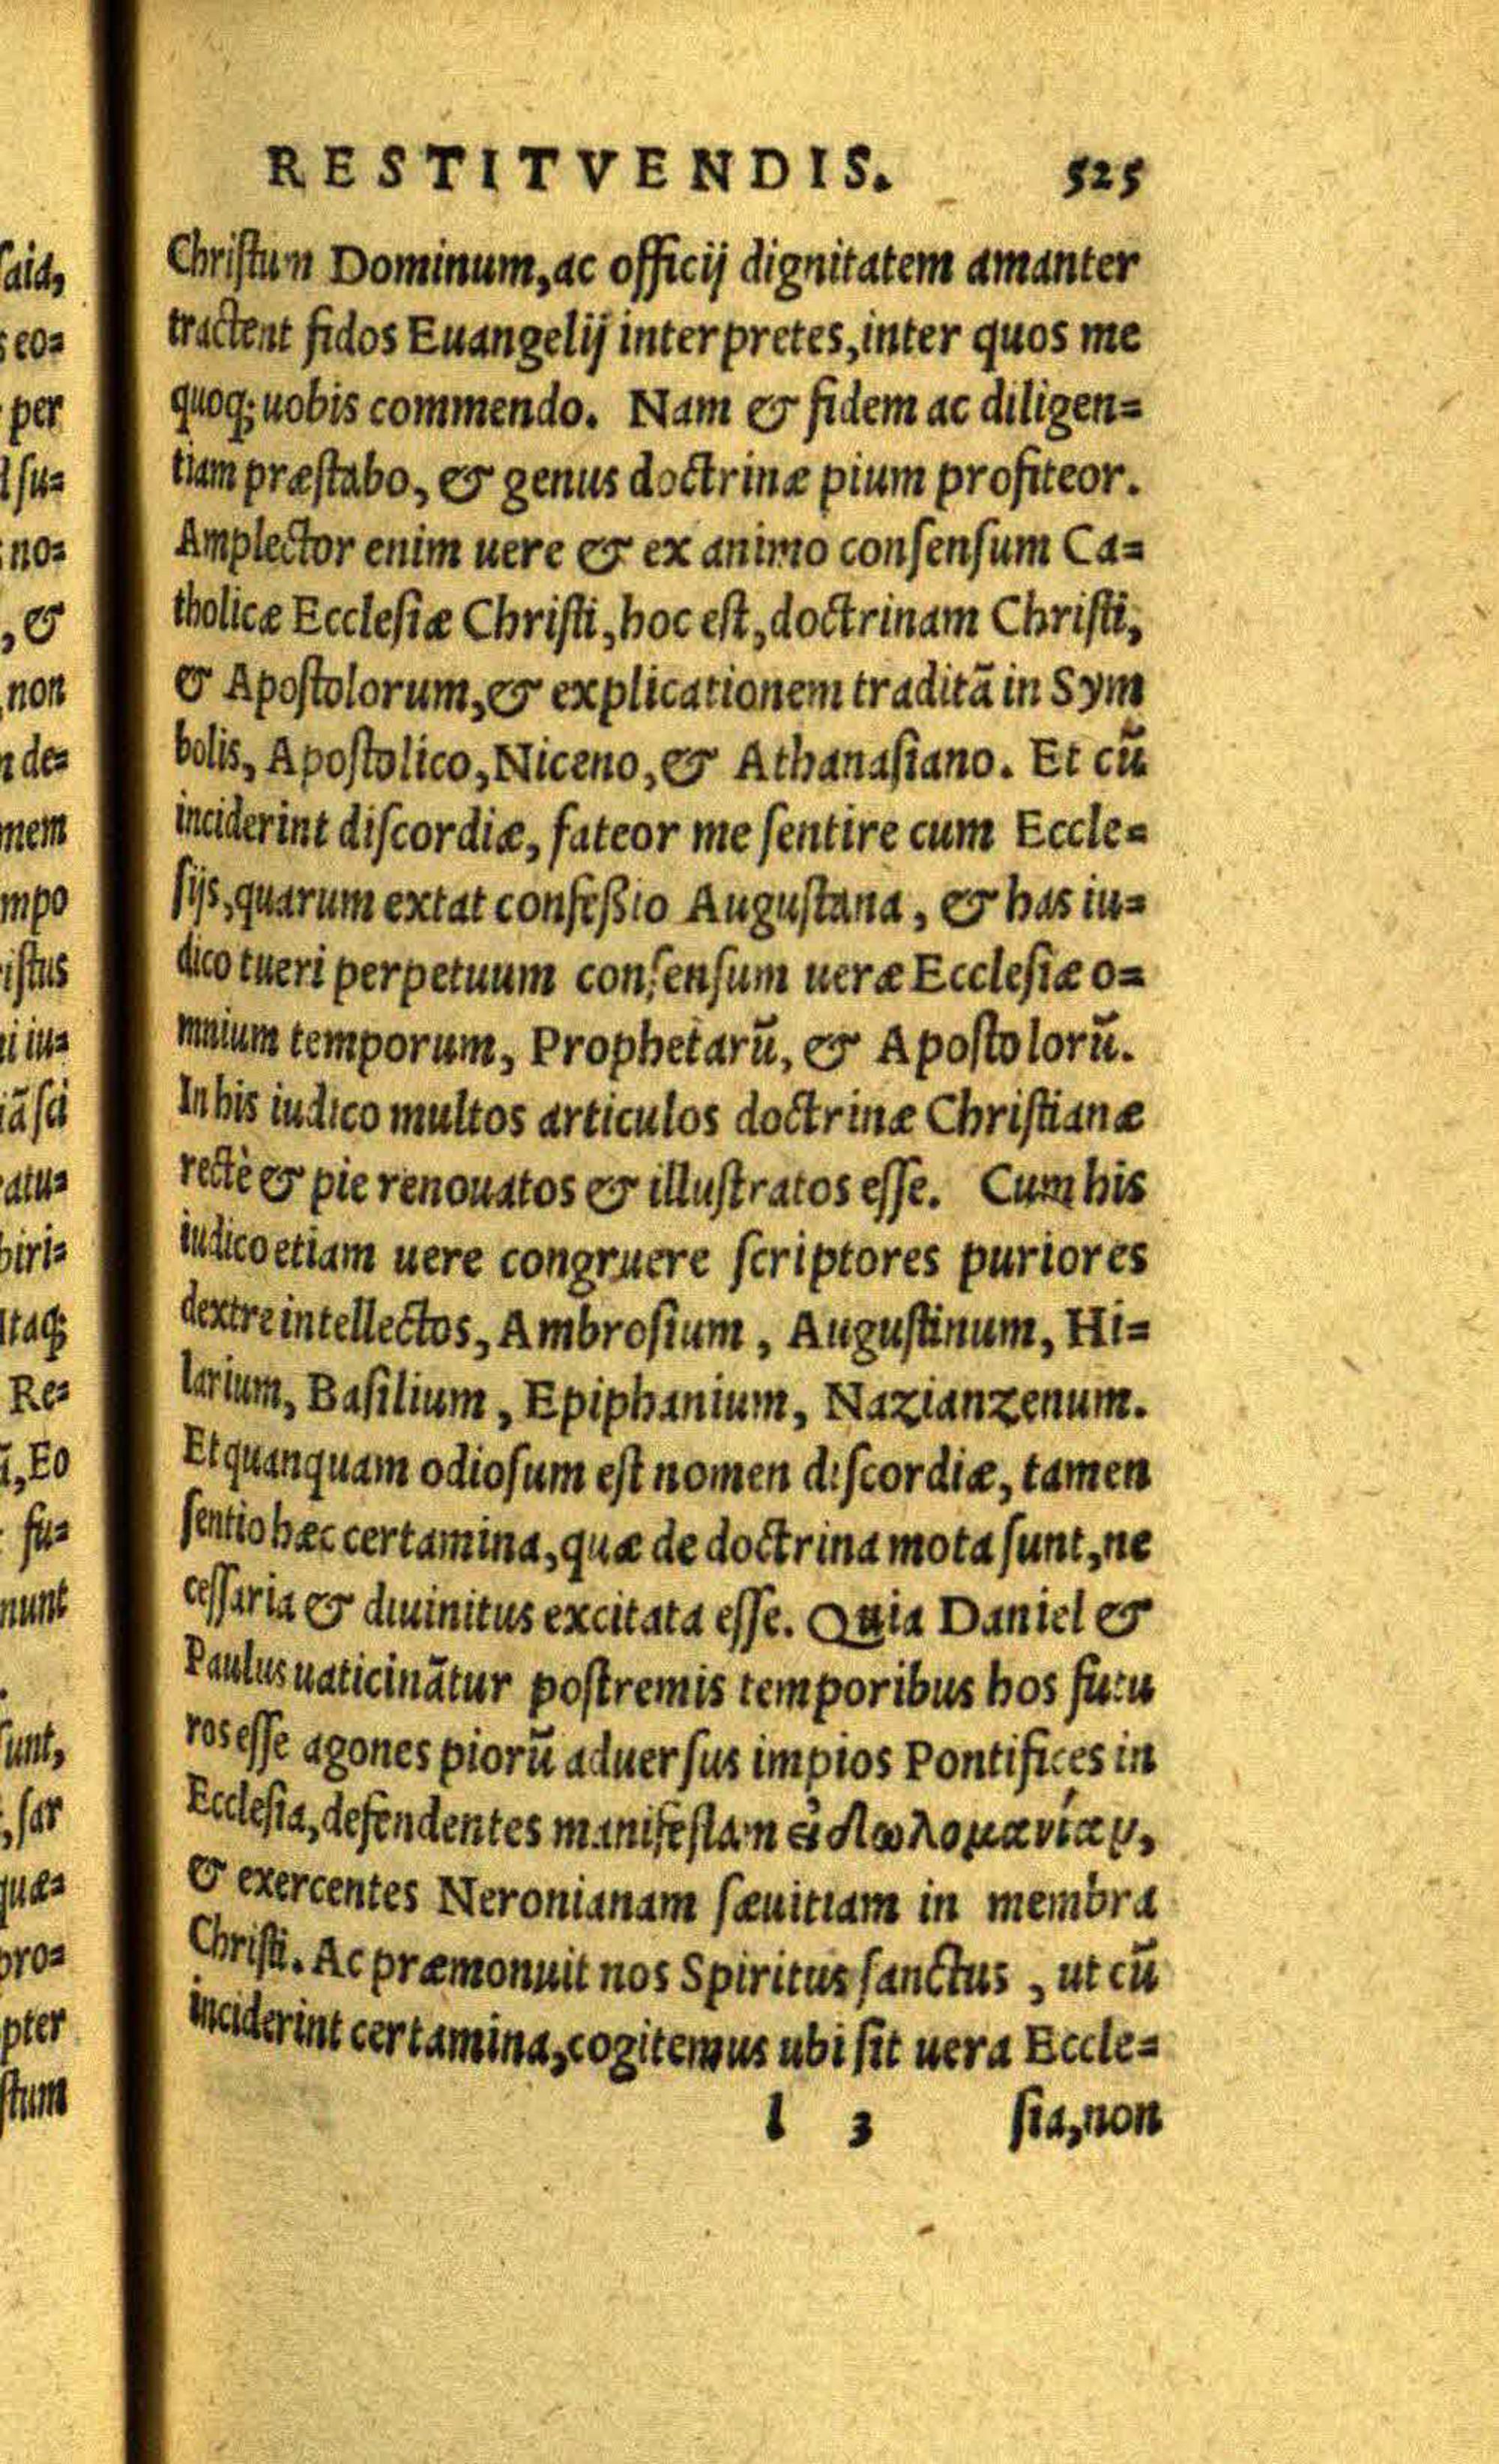 RESTITVENDIS. 525
Christum Dominum, ac officij dignitatem amanter
tractent fidos Euangelij interpretes, inter quos me
quoq; uobis commendo. Nam & fidem ac diligen=
tiam præstabo, & genus doctrinæ pium profiteor.
Amplector enim uere & ex animo consensum Ca=
tholicæ Ecclesiæ Christi, hoc est, doctrinam Christi,
& Apostolorum, & explicationem traditā in Sym
bolis, Apostolico, Niceno, & Athanasiano. Et cū
inciderint discordiæ, fateor me sentire cum Eccle=
sijs, quarum extat confeßio Augustana, & has iu=
dico tueri perpetuum consensum ueræ Ecclesiæ o=
mnium temporum, Prophetarū, & Apostolorū.
In his iudico multos articulos doctrinæ Christianæ
rectè & pie renouatos & illustratos esse. Cum his
iudico etiam uere congruere scriptores puriores
dextre intellectos, Ambrosium, Augustinum, Hi=
larium, Basilium, Epiphanium, Nazianzenum.
Et quanquam odiosum est nomen discordiæ, tamen
sentio hæc certamina, quæ de doctrina mota sunt, ne
cessaria & diuinitus excitata esse. Quia Daniel &
Paulus uaticinātur postremis temporibus hos futu
ros esse agones piorū aduersus impios Pontifices in
Ecclesia, defendentes manifestam εἰδωλομανίαν,
& exercentes Neronianam sæuitiam in membra
Christi. Ac præmonuit nos Spiritus sanctus, ut cū
inciderint certamina, cogitemus ubi sit uera Eccle=
l 3 sia, non
aid,
eo=
per
su=
no=
, &
non
de=
nem
mpo
istus
i iu=
iā sci
atu=
biri=
itaq;
Re=
, Eo
fu=
nunt
sunt,
, sar
quæ=
pro=
pter
stum